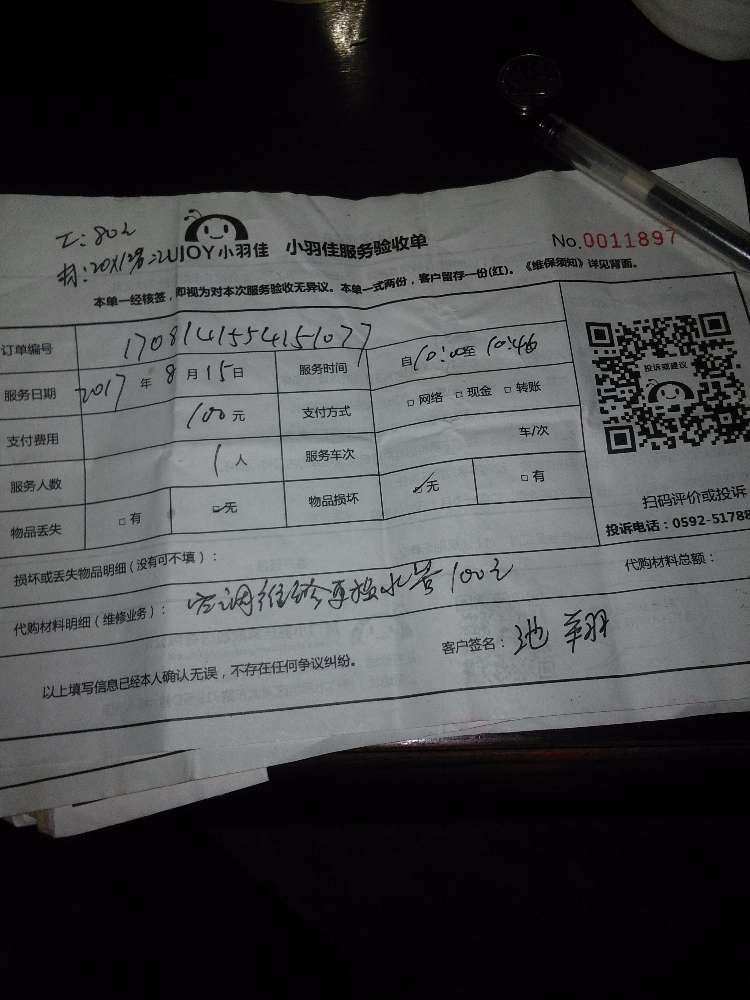 工:80元
UJOY 小羽佳 小羽佳服务验收单 No.0011897
本单一经核签，即视为对本次服务验收无异议。本单一式两份，客户留存一份(红)。《维保须知》详见背面。
订单编号 1708141554151077
服务日期 2017 年 8 月 15 日 服务时间 自 10:00 至 10:46
支付费用 100 元 支付方式 □ 网络 □ 现金 □ 转账
服务人数 1 人 服务车次 车/次
物品丢失 □ 有 ☑ 无 物品损坏 ☑ 无 □ 有
投诉或建议
扫码评价或投诉
投诉电话：0592-51788
损坏或丢失物品明细（没有可不填）：
代购材料明细（维修业务）： 空调维修更换水管100元 代购材料总额：
以上填写信息已经本人确认无误，不存在任何争议纠纷。 客户签名： 池翔